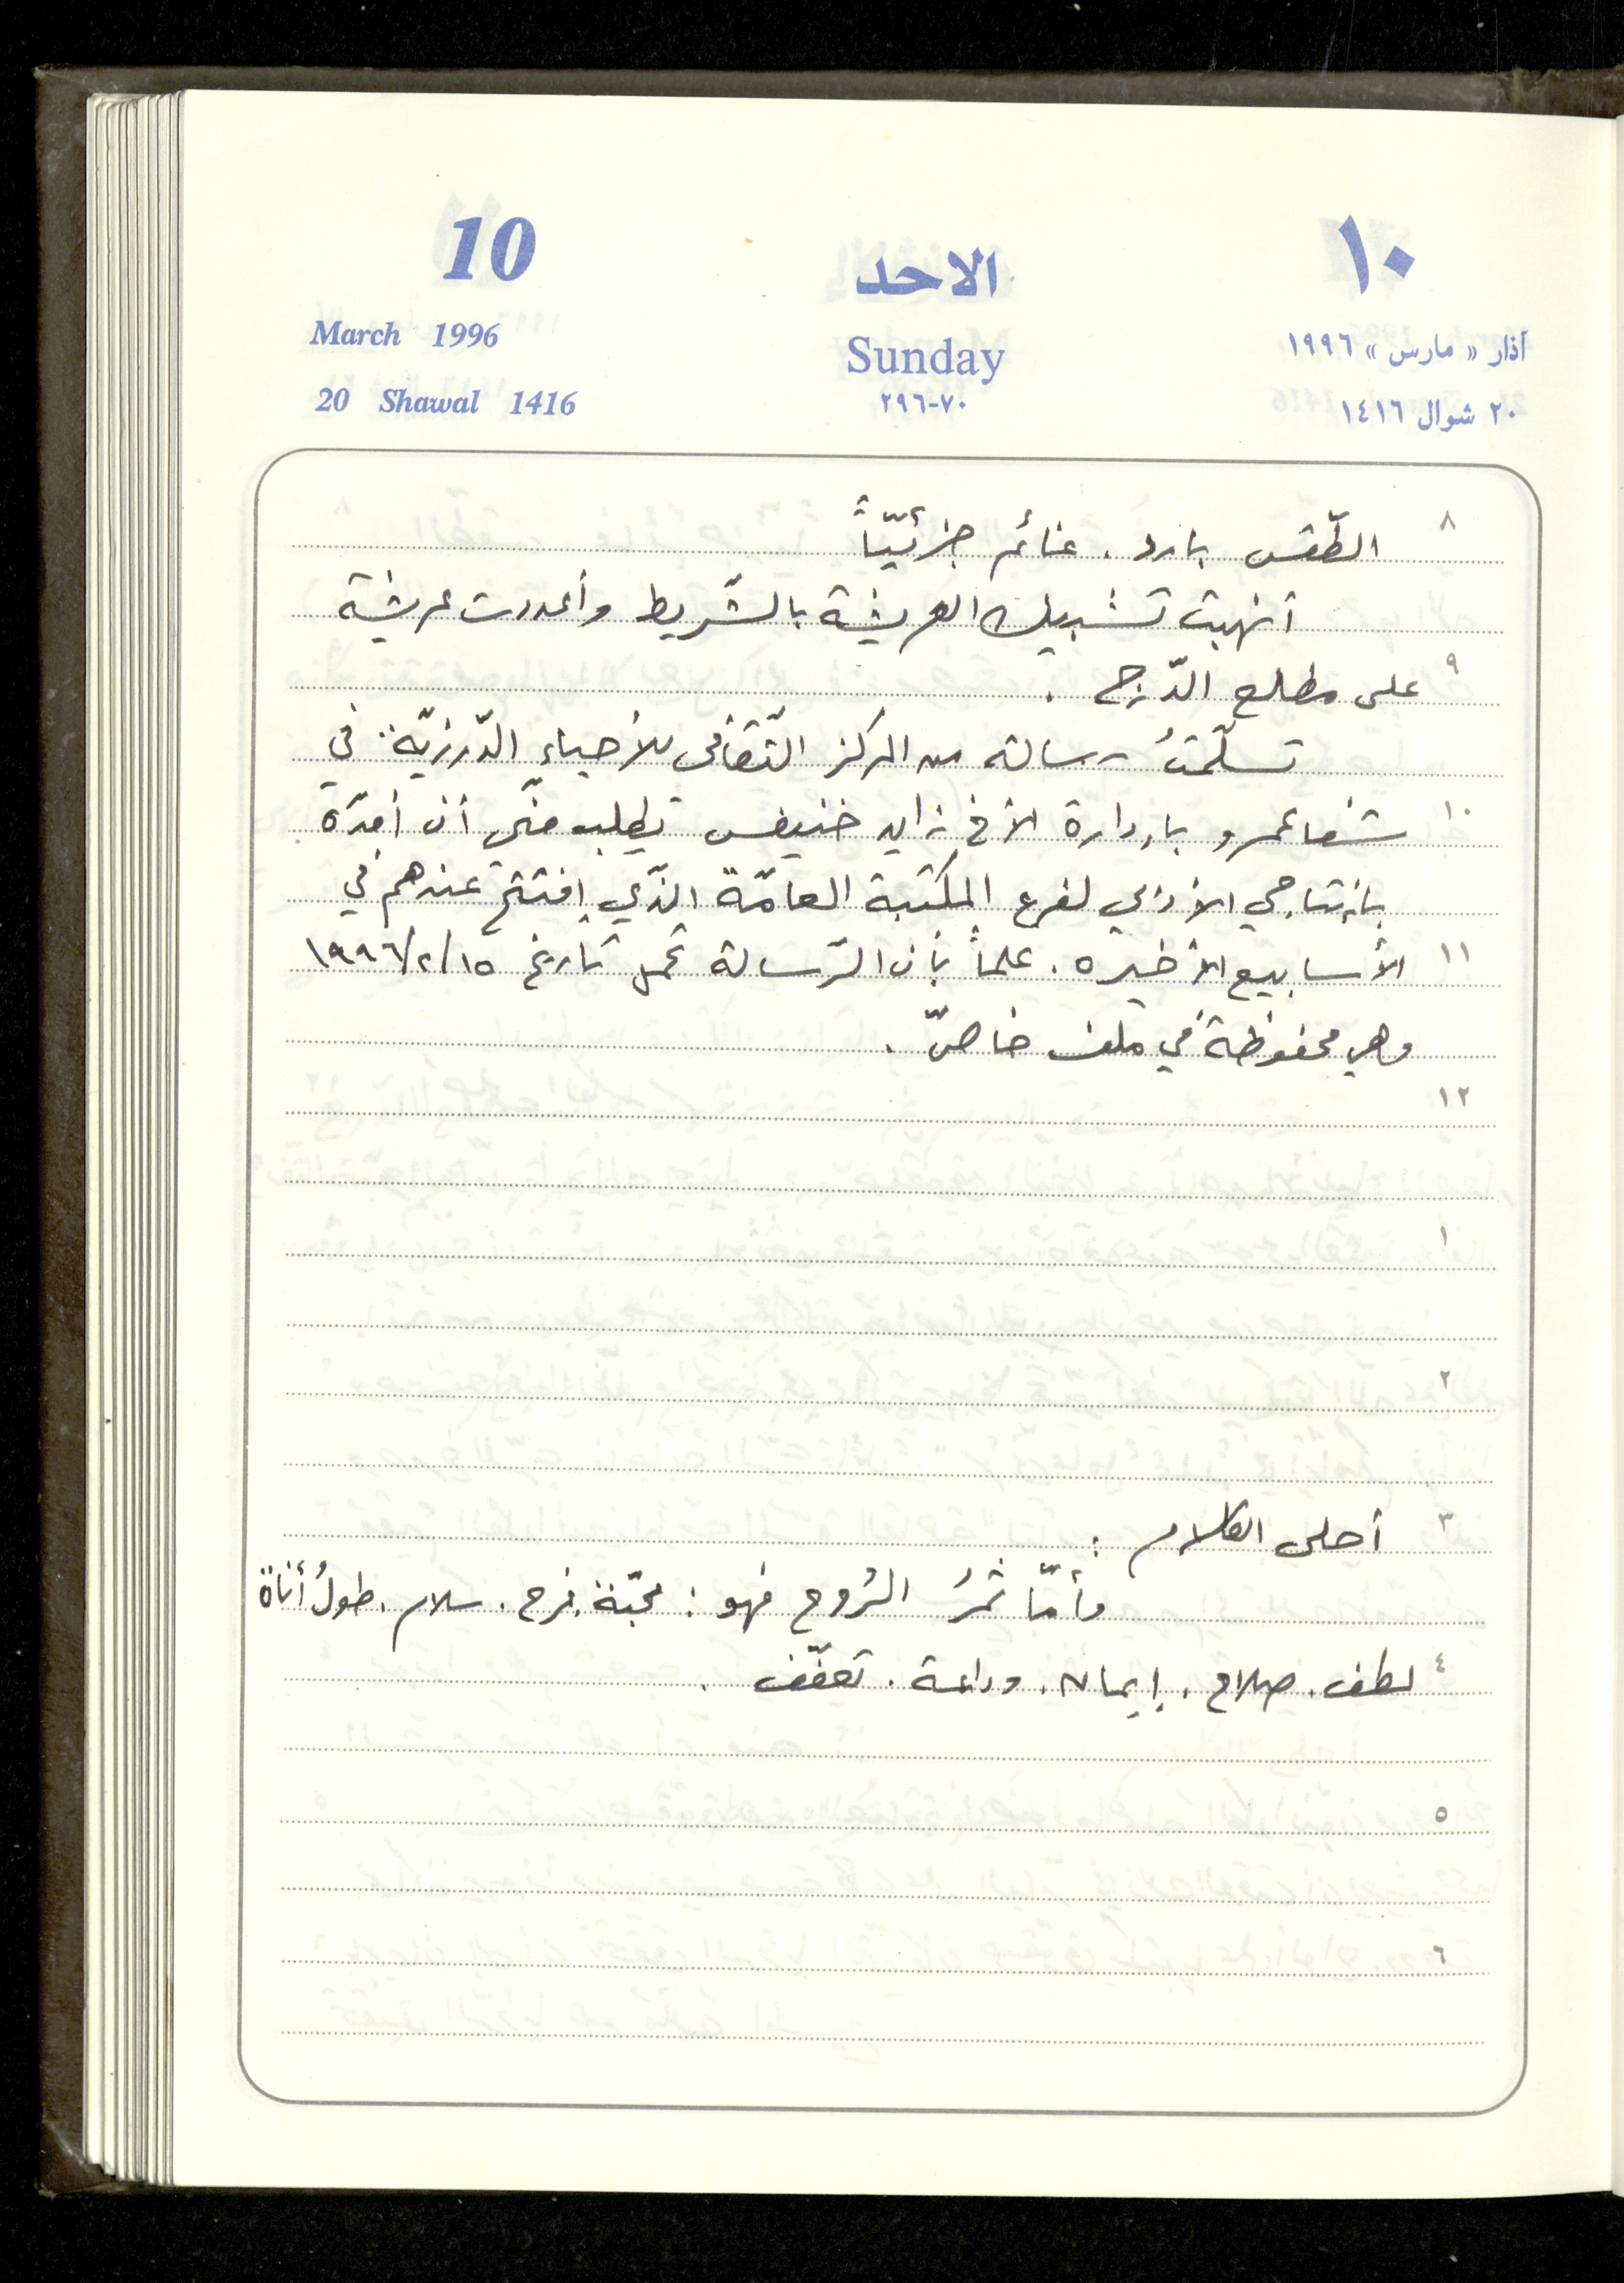 10
الاحد
١٠
March 1996
Sunday
آذار « مارس » ١٩٩٦
20 Shawal 1416
٧٠-٢٩٦
٢٠ شوال ١٤١٦
٨ الطّقس بارد. غائم جزئيّاً
أنهيت تشبيك العريشة بالشّريط وأعددت عريشة
٩ على مطلع الدّرج.
تسلّمتُ رسالة من المركز الثّقافي للأحياء الدّرزيّة في
١٠ شفاعمرو بإدارة الأخ زايد خنيفس تطلب منّي أن أمدّه
بإنتاجي الأدبي لفرع المكتبة العامّة الذّي افتتح عندهم في
١١ الأسابيع الأخيره. علماً بأن الرّسالة تحمل تاريخ ١٩٩٦/٢/١٥
وهي محفوظة في ملف خاصّ.
١٢
١
٢
٣ أحلى الكلام:
وأمّا ثمرُ الرّوح فهو: محبّة. فرح. سلام. طولُ أناة
٤ لطف. صلاح. إيمان. وداعة. تعفّف.
٥
٦